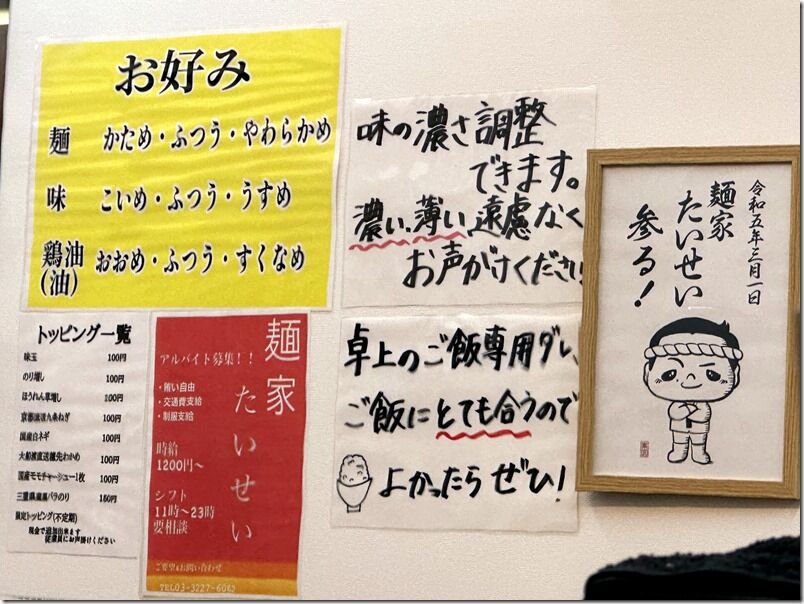 お好み
麺 かため・ふつう・やわらかめ
味 こいめ・ふつう・うすめ
鶏油(油) おおめ・ふつう・すくなめ
味の濃さ調整
できます。
濃い、薄い遠慮なく
お声がけください
令和五年三月一日
麺家
たいせい
参る!
トッピング一覧
味玉 100円
のり増し 100円
ほうれん草増し 100円
京都直送九条ねぎ 100円
国産白ネギ 100円
大船渡直送穂先わかめ 100円
国産モモチャーシュー1枚 100円
三重県産黒バラのり 150円
限定トッピング(不定期)
現金で追加出来ます
従業員にお声掛けください
麺家
たいせい
アルバイト募集!!
・賄い自由
・交通費支給
・制服支給
時給
1200円~
シフト
11時~23時
要相談
ご要望&お問い合わせ
TEL03-3227-6062
卓上のご飯専用ダレ、
ご飯にとても合うので
よかったらぜひ!